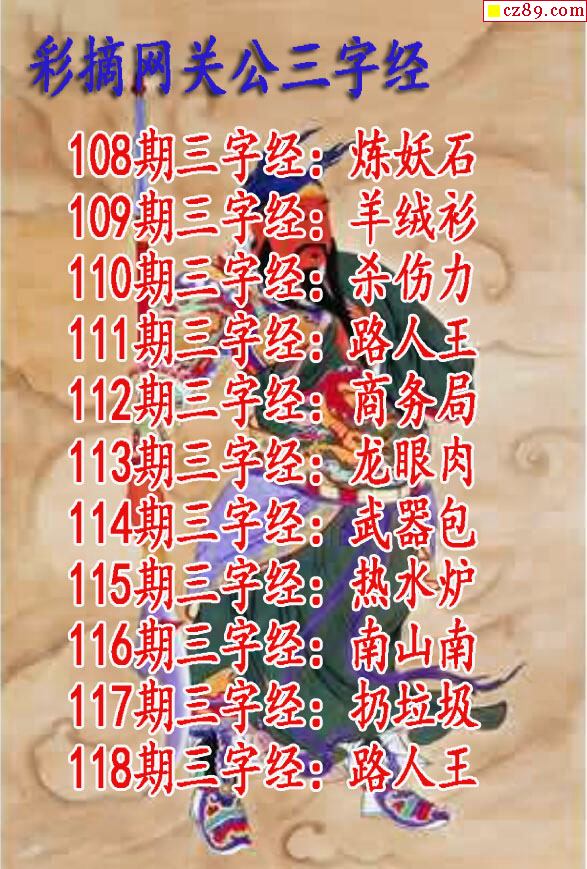 cz89.com
彩摘网关公三字经
108期三字经：炼妖石
109期三字经：羊绒衫
110期三字经：杀伤力
111期三字经：路人王
112期三字经：商务局
113期三字经：龙眼肉
114期三字经：武器包
115期三字经：热水炉
116期三字经：南山南
117期三字经：扔垃圾
118期三字经：路人王